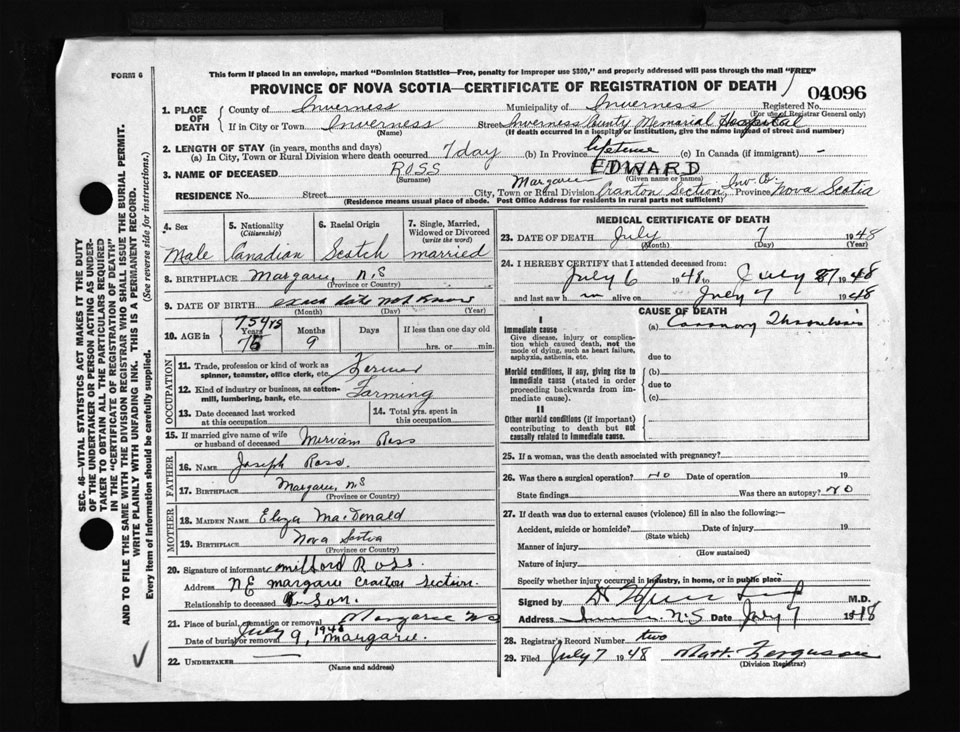 FORM 6
This form if placed in an envelope, marked "Dominion Statistics—Free, penalty for improper use $300," and properly addressed will pass through the mail "FREE"
PROVINCE OF NOVA SCOTIA—CERTIFICATE OF REGISTRATION OF DEATH
04096
1. PLACE OF DEATH
County of Inverness Municipality of Inverness Registered No.
(For use of Registrar General only)
If in City or Town Inverness Street Inverness County Memorial Hospital
(Name) (If death occurred in a hospital or institution, give the name instead of street and number)
2. LENGTH OF STAY (in years, months and days)
(a) In City, Town or Rural Division where death occurred 7 day (b) In Province lifetime (c) In Canada (if immigrant) -
3. NAME OF DECEASED ROSS EDWARD
(Surname) (Given name or names)
RESIDENCE No. Street City, Town or Rural Division Margaree Cranton Section, Inv. Co. Province Nova Scotia
(Residence means usual place of abode. Post Office Address for residents in rural parts not sufficient)
4. Sex Male
5. Nationality (Citizenship) Canadian
6. Racial Origin Scotch
7. Single, Married, Widowed or Divorced (write the word) married
8. BIRTHPLACE Margaree N.S
(Province or Country)
9. DATE OF BIRTH exact date not know
(Month) (Day) (Year)
10. AGE in 75 yrs
Years Months Days If less than one day old
75 9 hrs. or min.
OCCUPATION
11. Trade, profession or kind of work as spinner, teamster, office clerk, etc. Fermer
12. Kind of industry or business, as cotton-mill, lumbering, bank, etc. Farming
13. Date deceased last worked at this occupation
14. Total yrs. spent in this occupation
15. If married give name of wife or husband of deceased Miriam Ross
FATHER
16. NAME Joseph Ross.
17. BIRTHPLACE Margaree, N.S
(Province or Country)
MOTHER
18. MAIDEN NAME Eliza MacDonald
19. BIRTHPLACE Nova Scotia
(Province or Country)
20. Signature of informant Milford Ross.
Address N E Margaree Cranton Section.
Relationship to deceased Son.
21. Place of burial, cremation or removal Margaree N S
Date of burial or removal July 9, 1948 Margaree.
22. UNDERTAKER
(Name and address)
MEDICAL CERTIFICATE OF DEATH
23. DATE OF DEATH July 7 1948
(Month) (Day) (Year)
24. I HEREBY CERTIFY that I attended deceased from:
July 6 1948 to July 7 1948
and last saw him alive on July 7 1948
CAUSE OF DEATH
I
Immediate cause
Give disease, injury or complication which caused death, not the mode of dying, such as heart failure, asphyxia, asthenia, etc.
(a) Coronary Thrombosis
due to
Morbid conditions, if any, giving rise to immediate cause (stated in order proceeding backwards from immediate cause).
(b)
due to
(c)
II
Other morbid conditions (if important) contributing to death but not causally related to immediate cause.
25. If a woman, was the death associated with pregnancy?
26. Was there a surgical operation? No Date of operation 19
State findings Was there an autopsy? No
27. If death was due to external causes (violence) fill in also the following:—
Accident, suicide or homicide? Date of injury 19
(State which)
Manner of injury
(How sustained)
Nature of injury
Specify whether injury occurred in industry, in home, or in public place
Signed by M.D.
Address N.S Date July 7 1948
28. Registrar's Record Number two
29. Filed July 7 1948 Matt. Ferguson
(Division Registrar)
SEC. 46—VITAL STATISTICS ACT MAKES IT THE DUTY
OF THE UNDERTAKER OR PERSON ACTING AS UNDER-
TAKER TO OBTAIN ALL THE PARTICULARS REQUIRED
IN THE "CERTIFICATE OF REGISTRATION OF DEATH"
AND TO FILE THE SAME WITH THE DIVISION REGISTRAR WHO SHALL ISSUE THE BURIAL PERMIT.
WRITE PLAINLY WITH UNFADING INK. THIS IS A PERMANENT RECORD.
Every item of information should be carefully supplied. (See reverse side for instructions.)